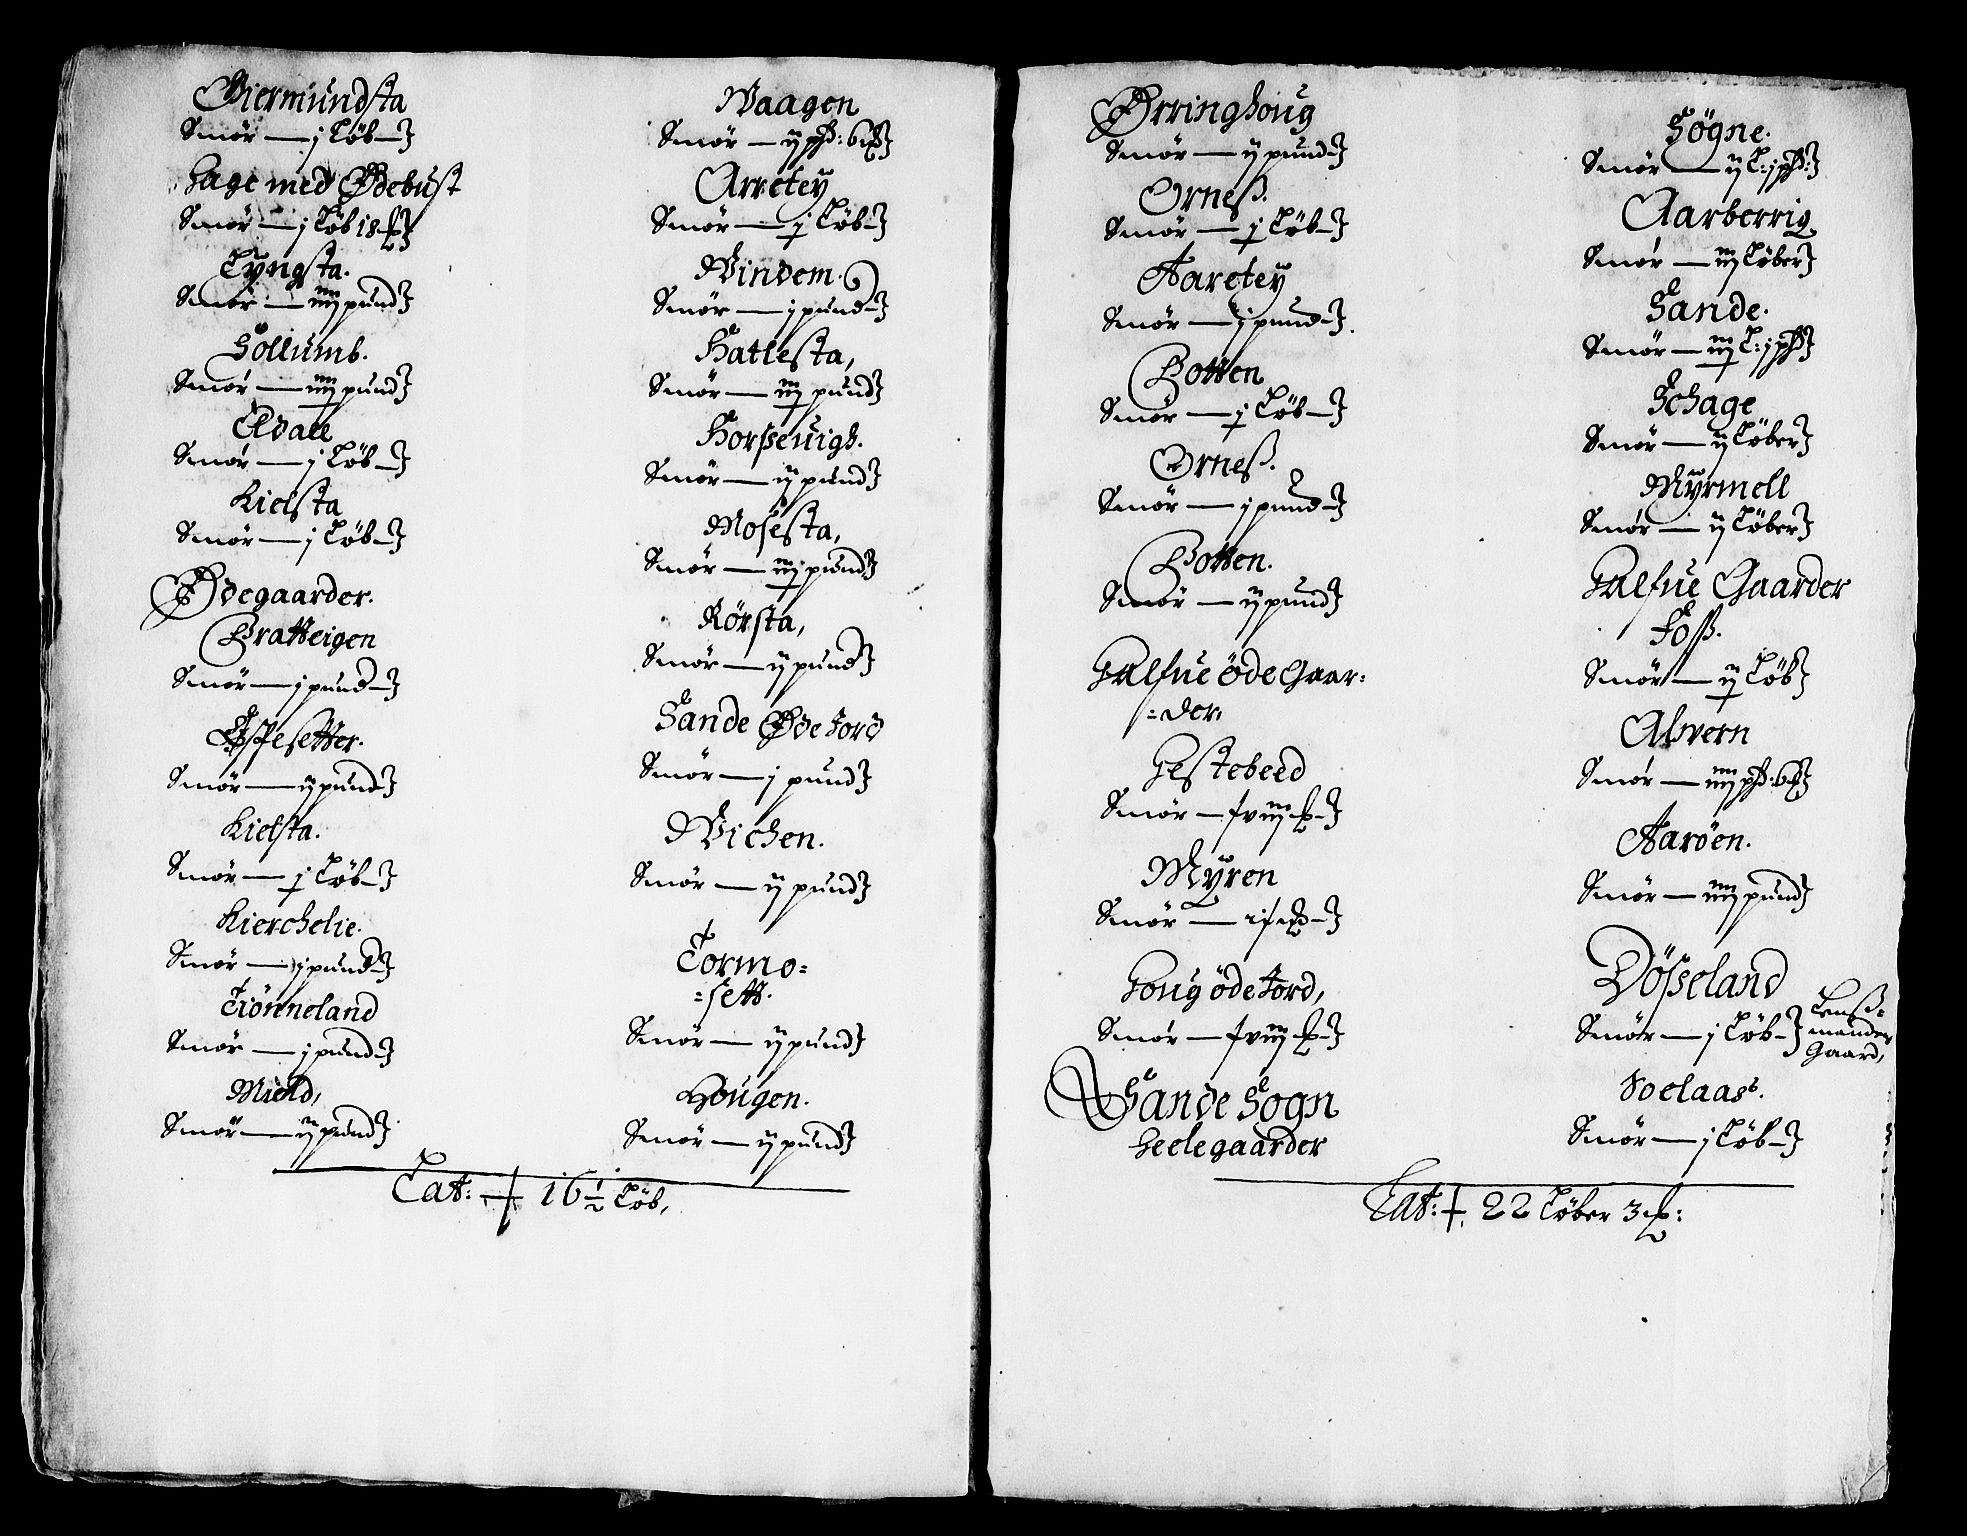 Giermundsta
Smør — j Løb —
Hage med Ødebust
Smør — j Løb 18 ℔
Tyngsta.
Smør — iiij pund
Sollumb.
Smør — iiij pund
Eldall
Smør — j Løb —
Kielsta
Smør — j Løb —
Ødegaarder.
Bratteigen
Smør — j pund —
Espesetter.
Smør — ij pund
Kielsta.
Smør — j Løb —
Kierchelie.
Smør — j pund —
Tiönneland
Smør — j pund —
Mield,
Smør — ij pund
Waagen
Smør — ij pd: 6 ℔
Arretey
Smør — j Løb —
Windem.
Smør — j pund —
Hatlesta,
Smør — iij pund
Horsseuigh.
Smør — ij pund
Mosesta,
Smør — iij pund
Rörsta,
Smør — ij pund
Sande Øde Jord
Smør — j pund
Wichen.
Smør — ij pund
Tormo=
=sett.
Smør — ij pund
Hougen.
Smør — ij pund
Lat: — 16 1/2 Løb,
Ørringhoug
Smør — ij pund
Orness.
Smør — j Løb —
Aaretey
Smør — j pund —
Botten
Smør — j Løb —
Orness.
Smør — j pund —
Botten.
Smør — ij pund
Halfue öde Gaar=
=der,
Hestebeed
Smør —
Myren
Smør —
Houg öde Jord,
Smør —
Sande Sogn
Heelegaarder
Søgne.
Smør — ij L: j pd:
Aarberrig.
Smør — iij Løber
Sande.
Smør — iij L: j pd
Schage
Smør — ij Løber
Myrmell
Smør — ij Løber
Halfue Gaarder
Foss.
Smør — ij Løb
Alvern
Smør — iiij pd: 6 ℔
Aaröen.
Smør — iiij pund
Dösseland
Smør — j Løb —
Lenss=
mandens
Gaard,
Soelaas.
Smør — j Løb —
Lat: 22 Løber 3 ℔: